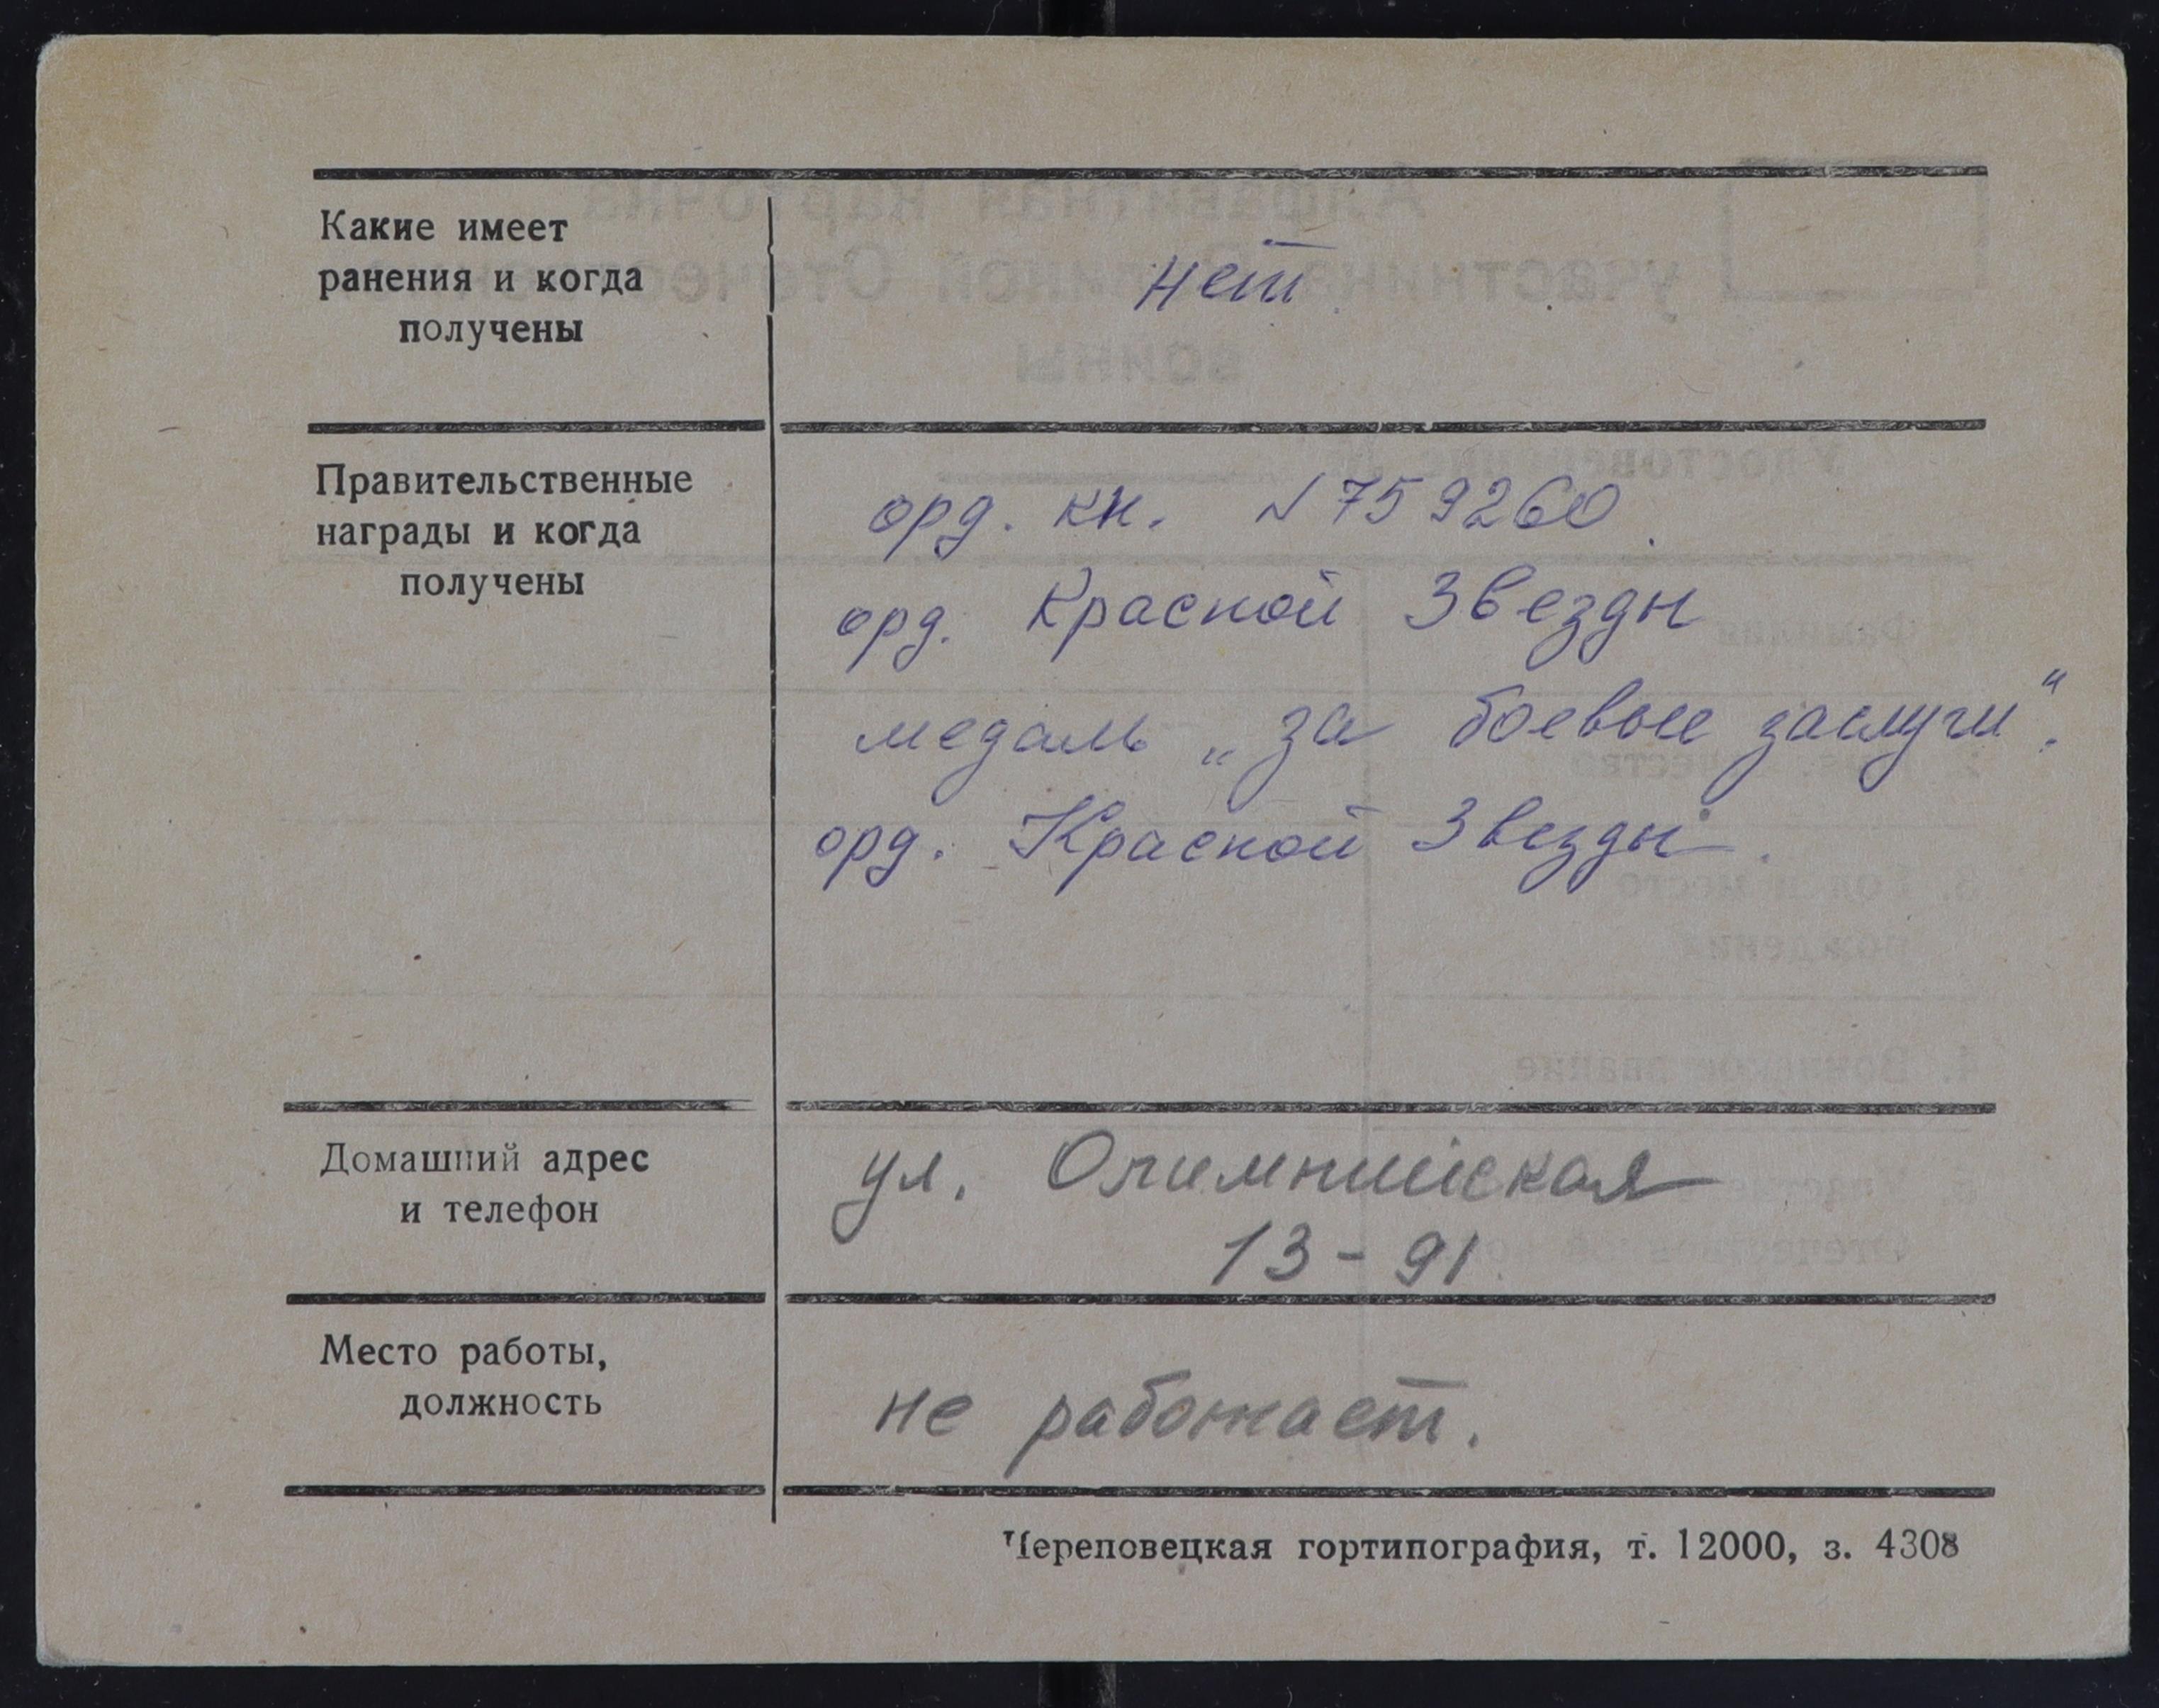 Какие имеет
ранения и когда
получены
нет.
Правительственные
награды и когда
получены
орд. кн. № 759260.
орд. Красной Звезды
медаль „за боевые заслуги“.
орд. Красной Звезды.
Домашний адрес
и телефон
ул. Олимпийская
13-91.
Место работы,
должность
не работает.
Череповецкая гортипография, т. 12000, з. 4308